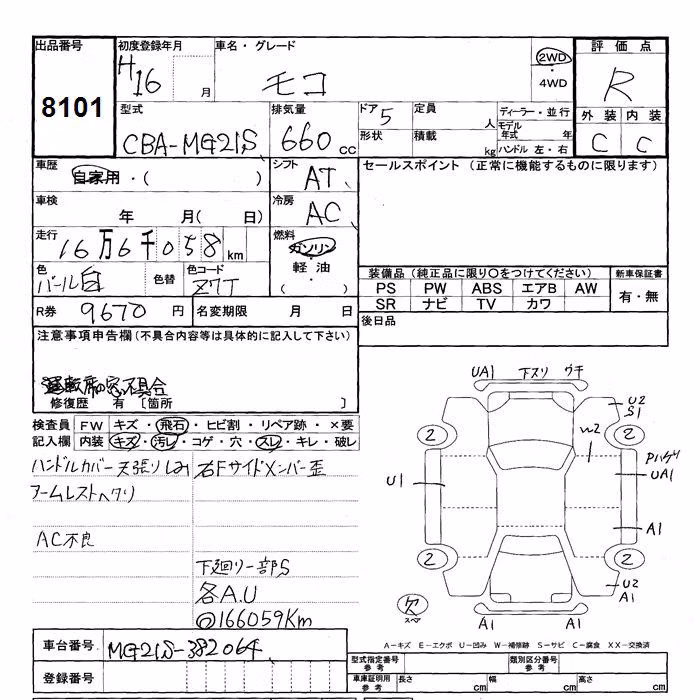 出品番号 初度登録年月 車名・グレード 評価点
8101 H16 月 モコ 2WD ・ 4WD R
型式 排気量 ドア 5 定員 人 ディーラー・並行 外装 内装
CBA-MG21S 660 cc 形状 積載 kg モデル年式 年 ハンドル 左・右 C C
車歴 シフト セールスポイント (正常に機能するものに限ります)
自家用・( ) AT
車検 冷房
年 月( 日) AC
走行 燃料
16万6千058 km ガソリン・軽油・( )
色 色替 色コード 装備品(純正品に限り○をつけてください) 新車保証書
パール白 Z7T PS PW ABS エアB AW 有・無
SR ナビ TV カワ
R券 9670 円 名変期限 月 日 後日品
注意事項申告欄(不具合内容等は具体的に記入して下さい)
運転席の窓不具合
修復歴 有 [箇所 ]
検査員 FW キズ・飛石・ヒビ割・リペア跡・×要
記入欄 内装 キズ・汚レ・コゲ・穴・スレ・キレ・破レ
ハンドルカバー 天張りしみ 右Fサイドメンバー歪
アームレストヘタリ
AC不良
下廻り一部S
各A.U
@166059Km
UA1 下スリ ウチ
U2
S1
2 2
W2
Pハゲ
UA1
U1
A1
2 2
U2
A1
欠
スペア
A1 A1
A-キズ E-エクボ U-凹み W-補修跡 S-サビ C-腐食 XX-交換済
車台番号 MG21S-382064
登録番号
型式指定番号 参考 類別区分番号 参考
車庫証明用 参考 長さ cm 幅 cm 高さ cm